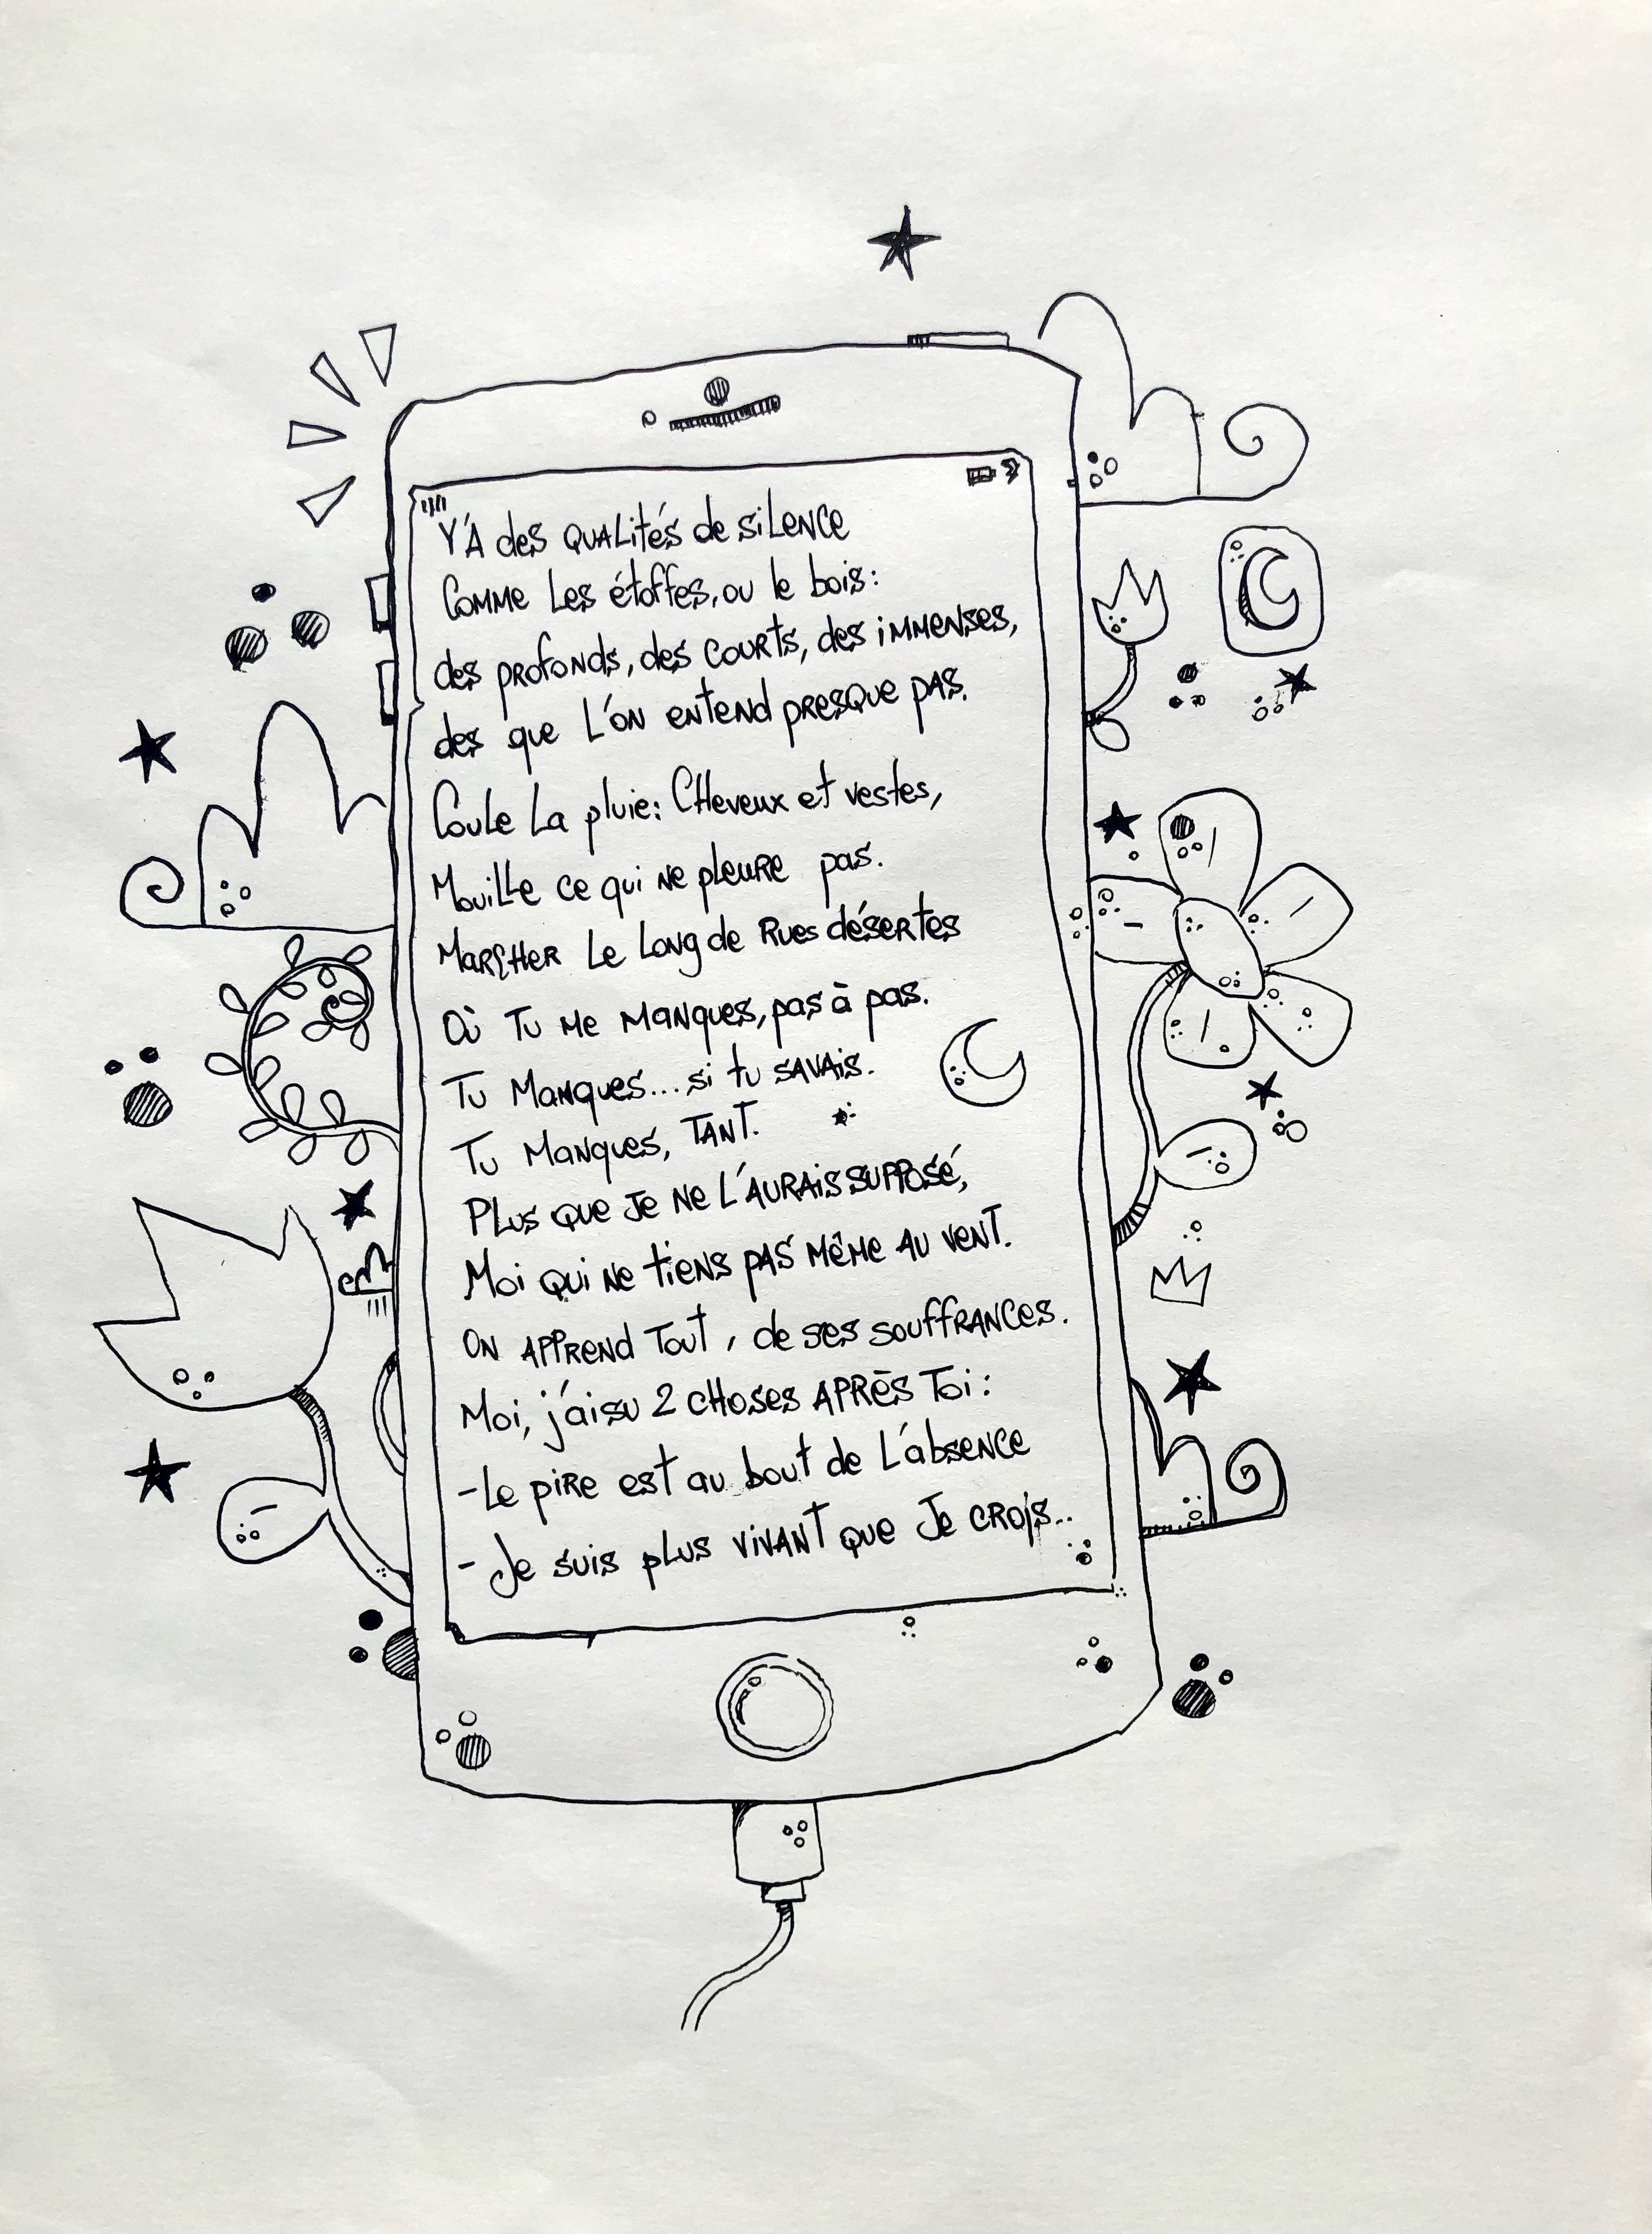 Y'A des QUALités de siLENCE
Comme Les étoffes, ou le bois:
des profonds, des courts, des iMMenses,
des que L'on entend presque pas.
Coule La pluie: CHeveux et vestes,
Mouille ce qui ne pleure pas.
MarcHer Le Long de Rues désertes
Où Tu Me Manques, pas à pas.
Tu Manques... si tu savais.
Tu Manques, TANT.
PLus que Je Ne L'AURAis supposé,
Moi qui ne tiens pas Même au vent.
On apprend Tout, de ses souffrances.
Moi, j'ai su 2 choses APRÈS Toi:
-Le pire est au bout de L'absence
- Je suis plus vivant que Je crois...